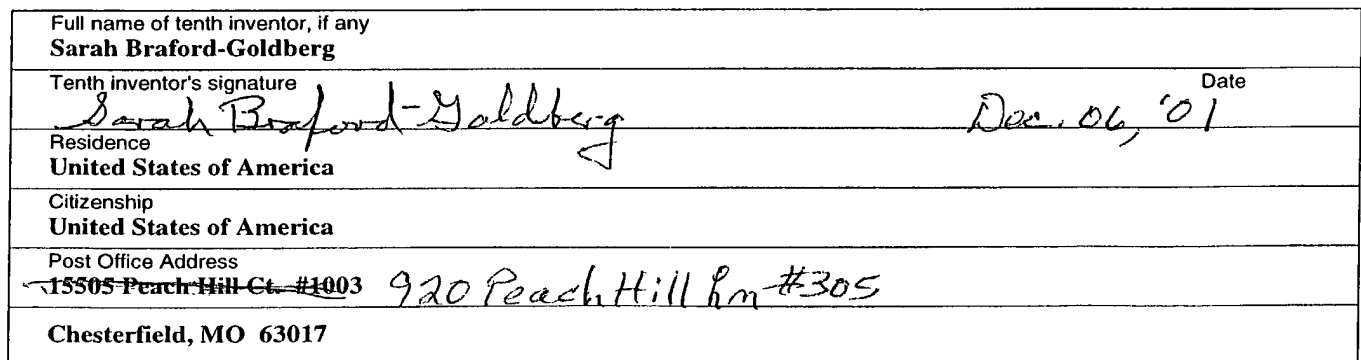 Full name of tenth inventor, if any
Sarah Braford-Goldberg
Tenth inventor's signature Date
Sarah Braford-Goldberg Dec. 06, '01
Residence
United States of America
Citizenship
United States of America
Post Office Address
15505 Peach Hill Ct. #1003 920 Peach Hill Ln #305
Chesterfield, MO 63017